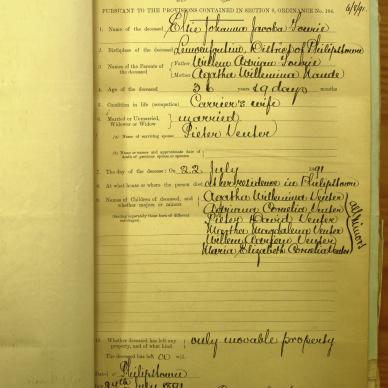 PURSUANT TO THE PROVISIONS CONTAINED IN SECTION 8, ORDINANCE No. 104.
6/8/91.
1. Name of the deceased Elsie Johanna Jacoba
2. Birthplace of the deceased District of Philipstown
3. Names of the Parents of the deceased { Father Willem Adriaan
Mother Agatha Willemina Naude
4. Age of the deceased 36 years 19 days months
5. Condition in life (occupation) Carrier's wife
6. Married or Unmarried, Widower or Widow } married
(a) Name of surviving spouse Pieter Venter
(b) Name or names and approximate date of death of previous spouse or spouses
7. The day of the decease: On 22 July 1891
8. At what house or where the person died At her residence in Philipstown
9. Names of Children of deceased, and whether majors or minors
Agatha Willemina Venter
Adriana Cornelia Venter
Pieter David Venter
Martha Magdalena Venter
Willem Adriaan Venter
Maria Elizabeth Cornelia Venter
all Minors
10. Whether deceased has left any property, and of what kind } only movable property
The deceased has left no will.
Dated at Philipstown
24th July 1891